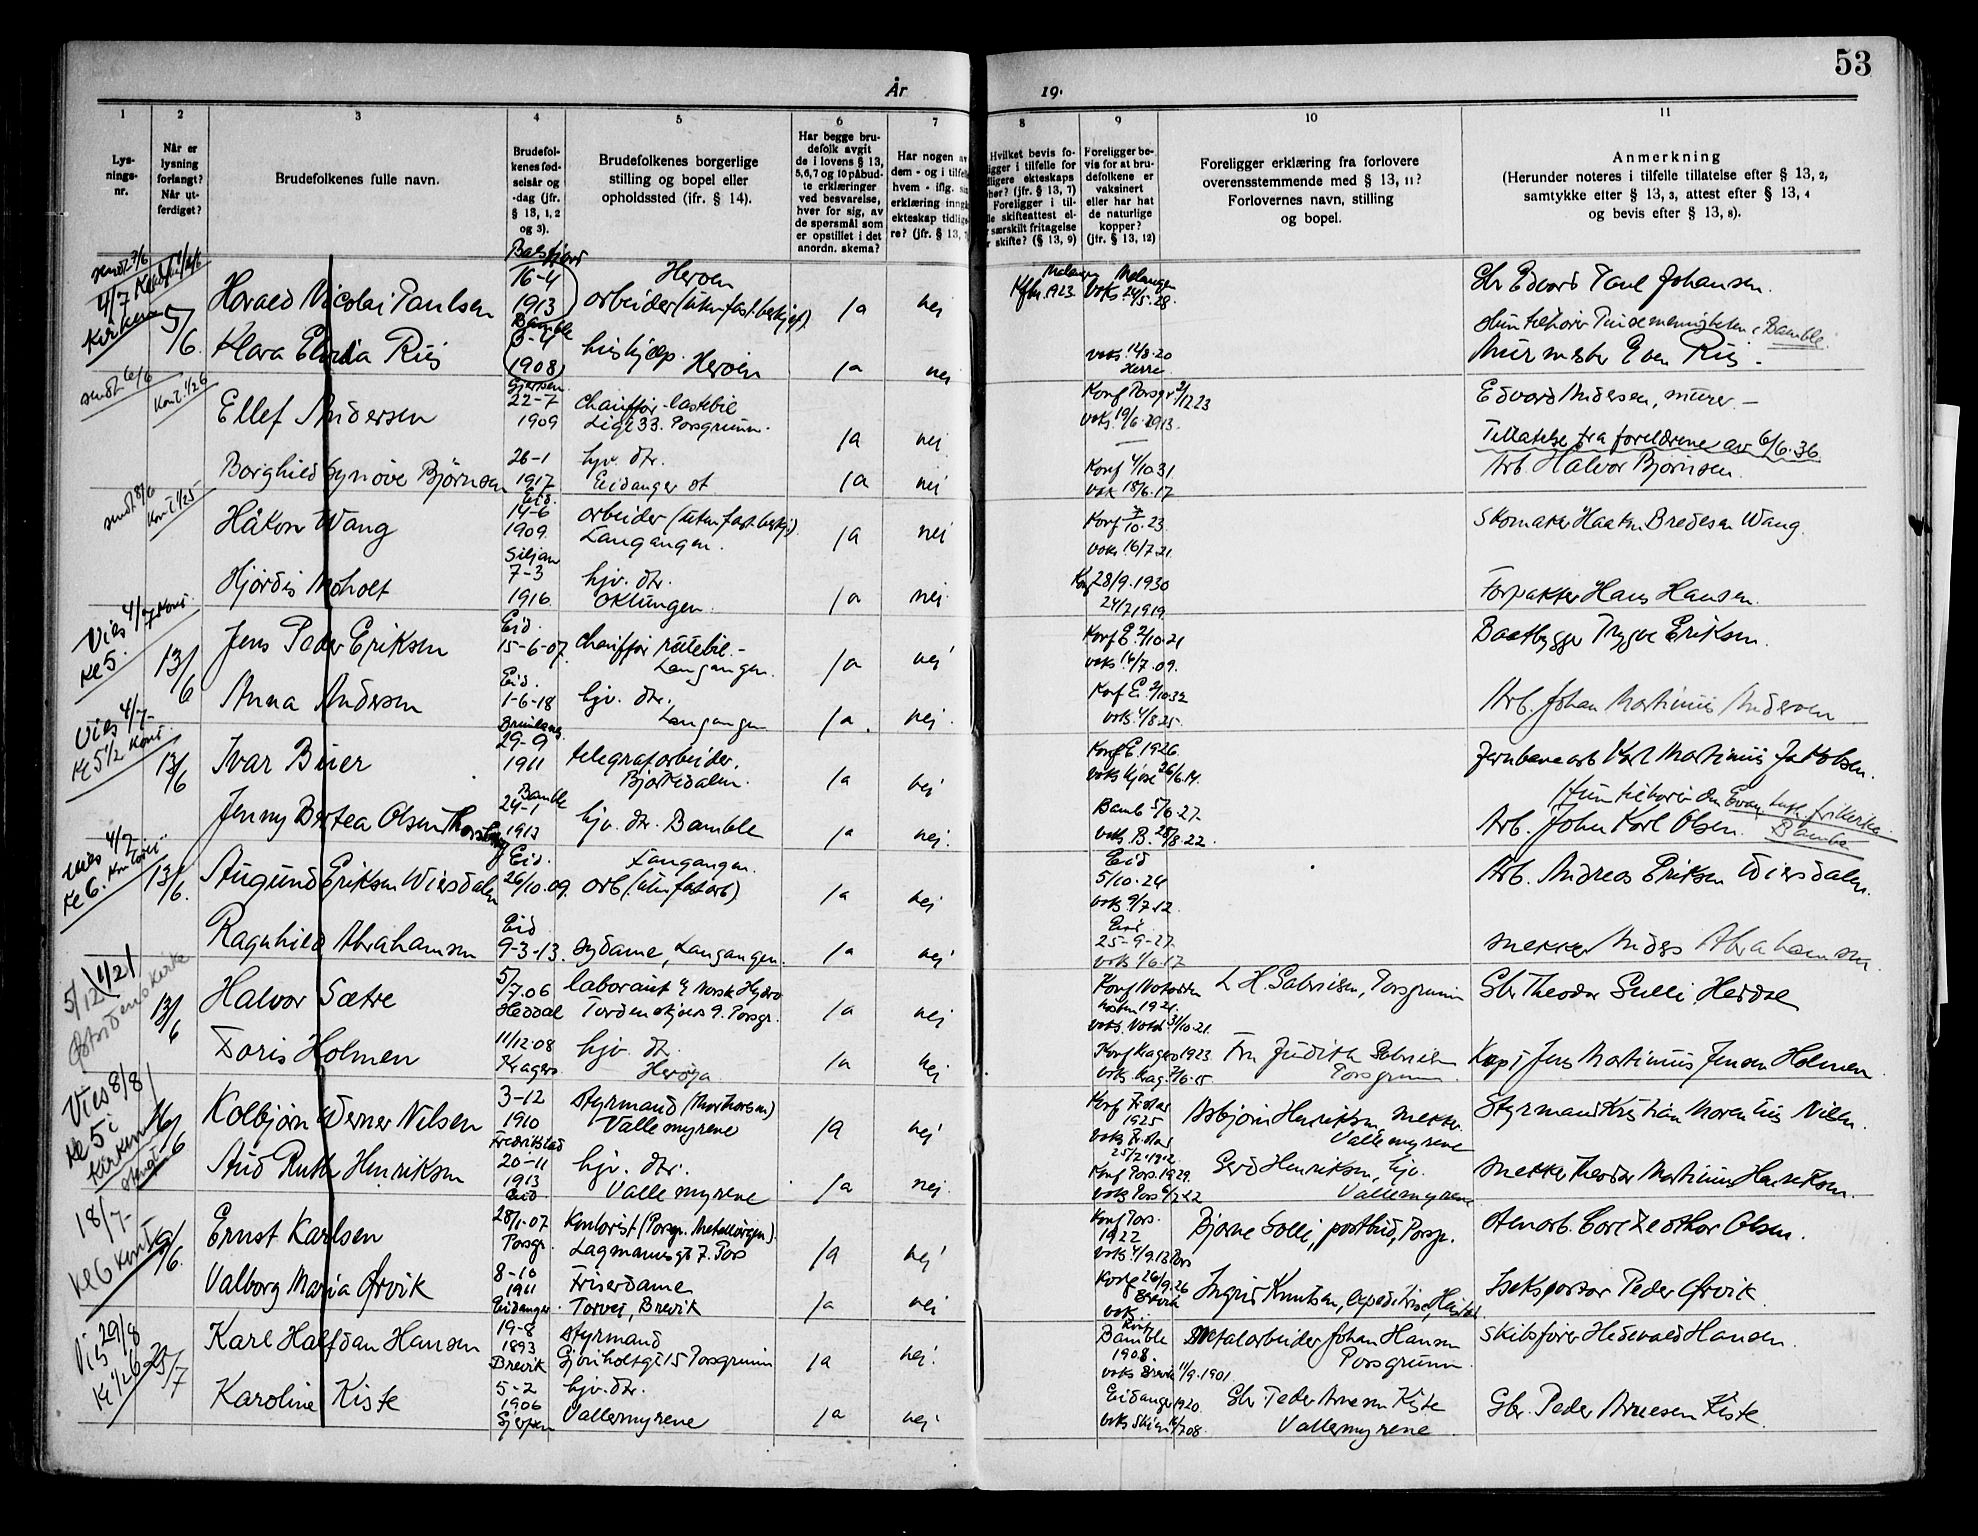 53
År 19.
1 2 3 4 5 6 7 8 9 10 11
Lys-
nings-
nr.
Når er
lysning
forlangt?
Når ut-
ferdiget?
Brudefolkenes fulle navn.
Brudefol-
kenes fød-
selsår og
-dag (jfr.
§ 13, 1, 2
og 3).
Brudefolkenes borgerlige
stilling og bopel eller
opholdssted (ifr. § 14).
Har begge bru-
defolk avgit
de i lovens § 13,
5, 6, 7 og 10 påbud-
te erklæringer
ved besvarelse,
hver for sig, av
de spørsmål som
er opstillet i det
anordn. skema?
Har nogen av
dem - og i tilfelle
hvem - iflg. sin
erklæring inngått
ekteskap tidlige-
re? (jfr. § 13,
Hvilket bevis fo-
ligger i tilfelle for
dligere ekteskaps
hør? (jfr. § 13, 7)
Foreligger i til-
le skifteattest el-
særskilt fritagelse
skifte? (§ 13, 9)
Foreligger be-
vis for at bru-
defolkene er
vaksinert
eller har hat
de naturlige
kopper?
(jfr. § 13, 12)
Foreligger erklæring fra forlovere
overensstemmende med § 13, 11?
Forlovernes navn, stilling
og bopel.
Anmerkning
(Herunder noteres i tilfelle tillatelse efter § 13, 2,
samtykke efter § 13, 3, attest efter § 13, 4
og bevis efter § 13, 8).
4/7 Kirken 5/6. Harald Nicolai Paulsen 16-4 1913 Herøen arbeider (uten fast beskjef) ja nei Gbr Edvard Paul Johansen.
Klara Elvida Riis 1908 hushjelp. Herøen ja nei vaks. 14/8.20 Herre Hun tilhører Pinsemenigheten i Bamble.
Murmester Even Riis.
Ellef Andersen Gjerpen 22-7 1909 chauffør lastebil Porsgrunn. ja nei Konf Porsgr 2/12 23 Edvard Andersen, murer.
Tillatelse fra foreldrene av 6/6.36.
Borghild Synøve Bjørnsen 26-1 1917 hjv. dtr. Eidanger st ja nei Konf 4/10.31 vak 18/6.17 Arb. Halvor Bjørnsen.
Håkon Wang Eid. 14-6 1909. arbeider (uten fast beskj) Langangen. ja nei Konf 10.23 vaks 16/7.21. Skomaker Haakon Bredesen Wang.
Hjørdis Moholt Siljan 7-3 1916 hjv. dtr. Oklungen. ja nei Konf 28/9.1930 24/7 1919 Forpakter Hans Hansen.
Vies 4/7 Kont. Kl 5. 13/6 Jens Peder Eriksen Eid. 15-6-07. chauffør rutebil. Langangen. ja nei Konf E. 2/10.21 vaks 16/7.09. Baatbygger Trygve Eriksen.
Anna Andersen Eid. 1-6-18 hjv. dtr. Langangen ja nei. Konf Ei. 2/10.32 vaks. 4/8.25. Arb. Johan Martinius Andersen
Vies 4/7- Kl 5 1/2 Kont. 13/6 Ivar Buer 29-9 1911 telegrafarbeider. Bjørkedalen. ja nei Konf E 1926. vaks Gjerp 26/6.14. Jernbanearb Karl Martinius Jakobsen.
Hun tilhører den Evang. luth. frikirke Bamble
Jenny Bertea Olsen Thorsberg Bamble 24-1 1913 hjv. dtr. Bamble ja nei. Bamb 5/6.27. vaks. B. 28/8.22. Arb. John Karl Olsen.
Vies 4/7 Kl 6. Kontoret 13/6. Augund Eriksen Wiersdalen Eid. 26/10.09. Langangen. arb (uten fast arb) ja nei Eid 5/10.24 vaks 9/7.12. Arb. Andreas Eriksen Wiersdalen.
Ragnhild Abrahamsen Eid 9-3-13. sydame, Langangen. ja nei Eid 25-9-27. vaks 1/6.17 snekker Anders Abrahamsen.
5/12 Østsidens kirke 13/6 Halvor Sætre 5/7.06 Heddal laborant v Norsk Hydro Tordenskjolds 9. Porsgr. ja nei Konf Notodden høsten 1921. vaks. Notod 31/10.21. L H. Gabrielsen, Porsgrunn Gbr Theodor Gulli Heddal
Doris Holmen 11/12.08 Kragerø hjv. dtr. Herøya ja nei Konf Kragerø 1923. Fru Judith Gabrielsen Porsgrunn. Kapt Jens Martinius Jensen Holmen
Vies 8/8 Kl 5 i Kirken 16/6 Kolbjørn Werner Nilsen 3-12 1910 Fredrikstad styrmand (Thor Thoresen) Vallemyrene ja nei Konf Fr.stad 1925 vaks Fr.stad 25/7 1912 Asbjørn Henriksen, snekker Vallemyrene Styrmand Kristian Norentius Nilsen.
Aud Ruth Henriksen 20-11 1913 Eid. hjv. dtr. Vallemyrene ja nei Konf Pors. 1929. Gerd Henriksen, hjv. Vallemyrene snekker Theodor Martinius Henriksen.
18/7- Kl 6 Kont. 19/6. Ernst Karlsen 28/1.07 Porsgr. Kontorist (Porsgr. Metallvorgen) Lagmannsgt 7. Pors ja nei Konf Pors. 1922 Bjarne Solli, postbud, Porsgr. Stenarb. Carl Leothor Olsen.
Valborg Maria Ørvik 8-10 1911 Eidanger. Friserdame Torvet, Brevik ja nei Konf 26/9.26 Brevik Ingrid Knutsen, expeditrise, Heistad Iseksportør Peder Ørvik.
Vies 29/8 25/7 Karl Halfdan Hansen 19-8 1893 Brevik styrmand Gjønholtgt 15 Porsgrunn ja nei. Konf Bamble 1908. vaks Brevik 11/9.1901. Metalarbeider Johan Hansen Porsgrunn. Skibsfører Hedevald Hansen.
Karoline Kiste 5-2 1906 Gjerpen hjv. dtr. Vallermyrene ja nei Eidanger 1920. vaks Skien 16/7 08. Gbr Peder Arnesen Kiste Vallermyrene Gbr. Peder Arnesen Kiste.